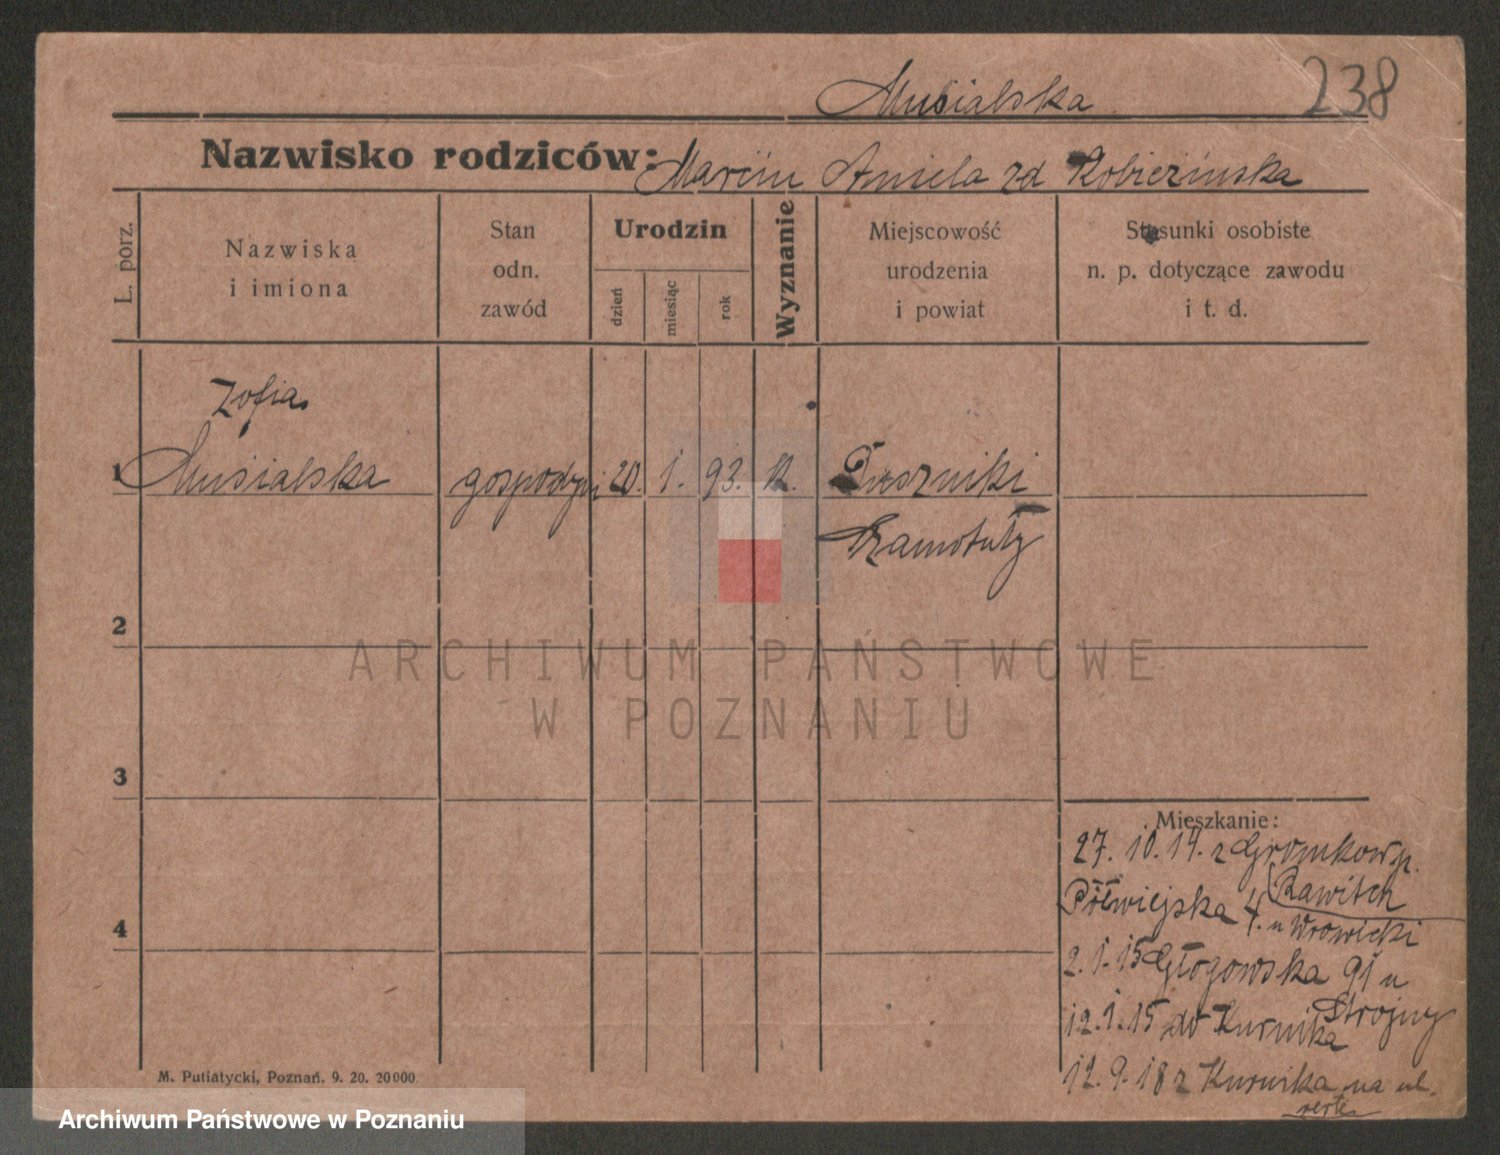 238
Musialska
Nazwisko rodziców: Marcin Aniela zd Kobierzińska
L. porz.
Nazwiska
i imiona
Stan
odn.
zawód
Urodzin
dzień
miesiąc
rok
Wyznanie
Miejscowość
urodzenia
i powiat
Stosunki osobiste
n. p. dotyczące zawodu
i t. d.
Zofia
1 Musialska gospodyni 20. 1. 93. K.
Szamotuły
2
ARCHIWUM PAŃSTWOWE
W POZNANIU
3
Mieszkanie:
27. 10. 14. z
Rawitch
Półwiejska 4. u
4
2. 1. 15 Głogowska 91 u
Strojny
12. 1. 15 do Kurnika
12. 9. 18 z Kurnika na ul.
M. Putiatycki, Poznań. 9. 20. 20000.
Archiwum Państwowe w Poznaniu